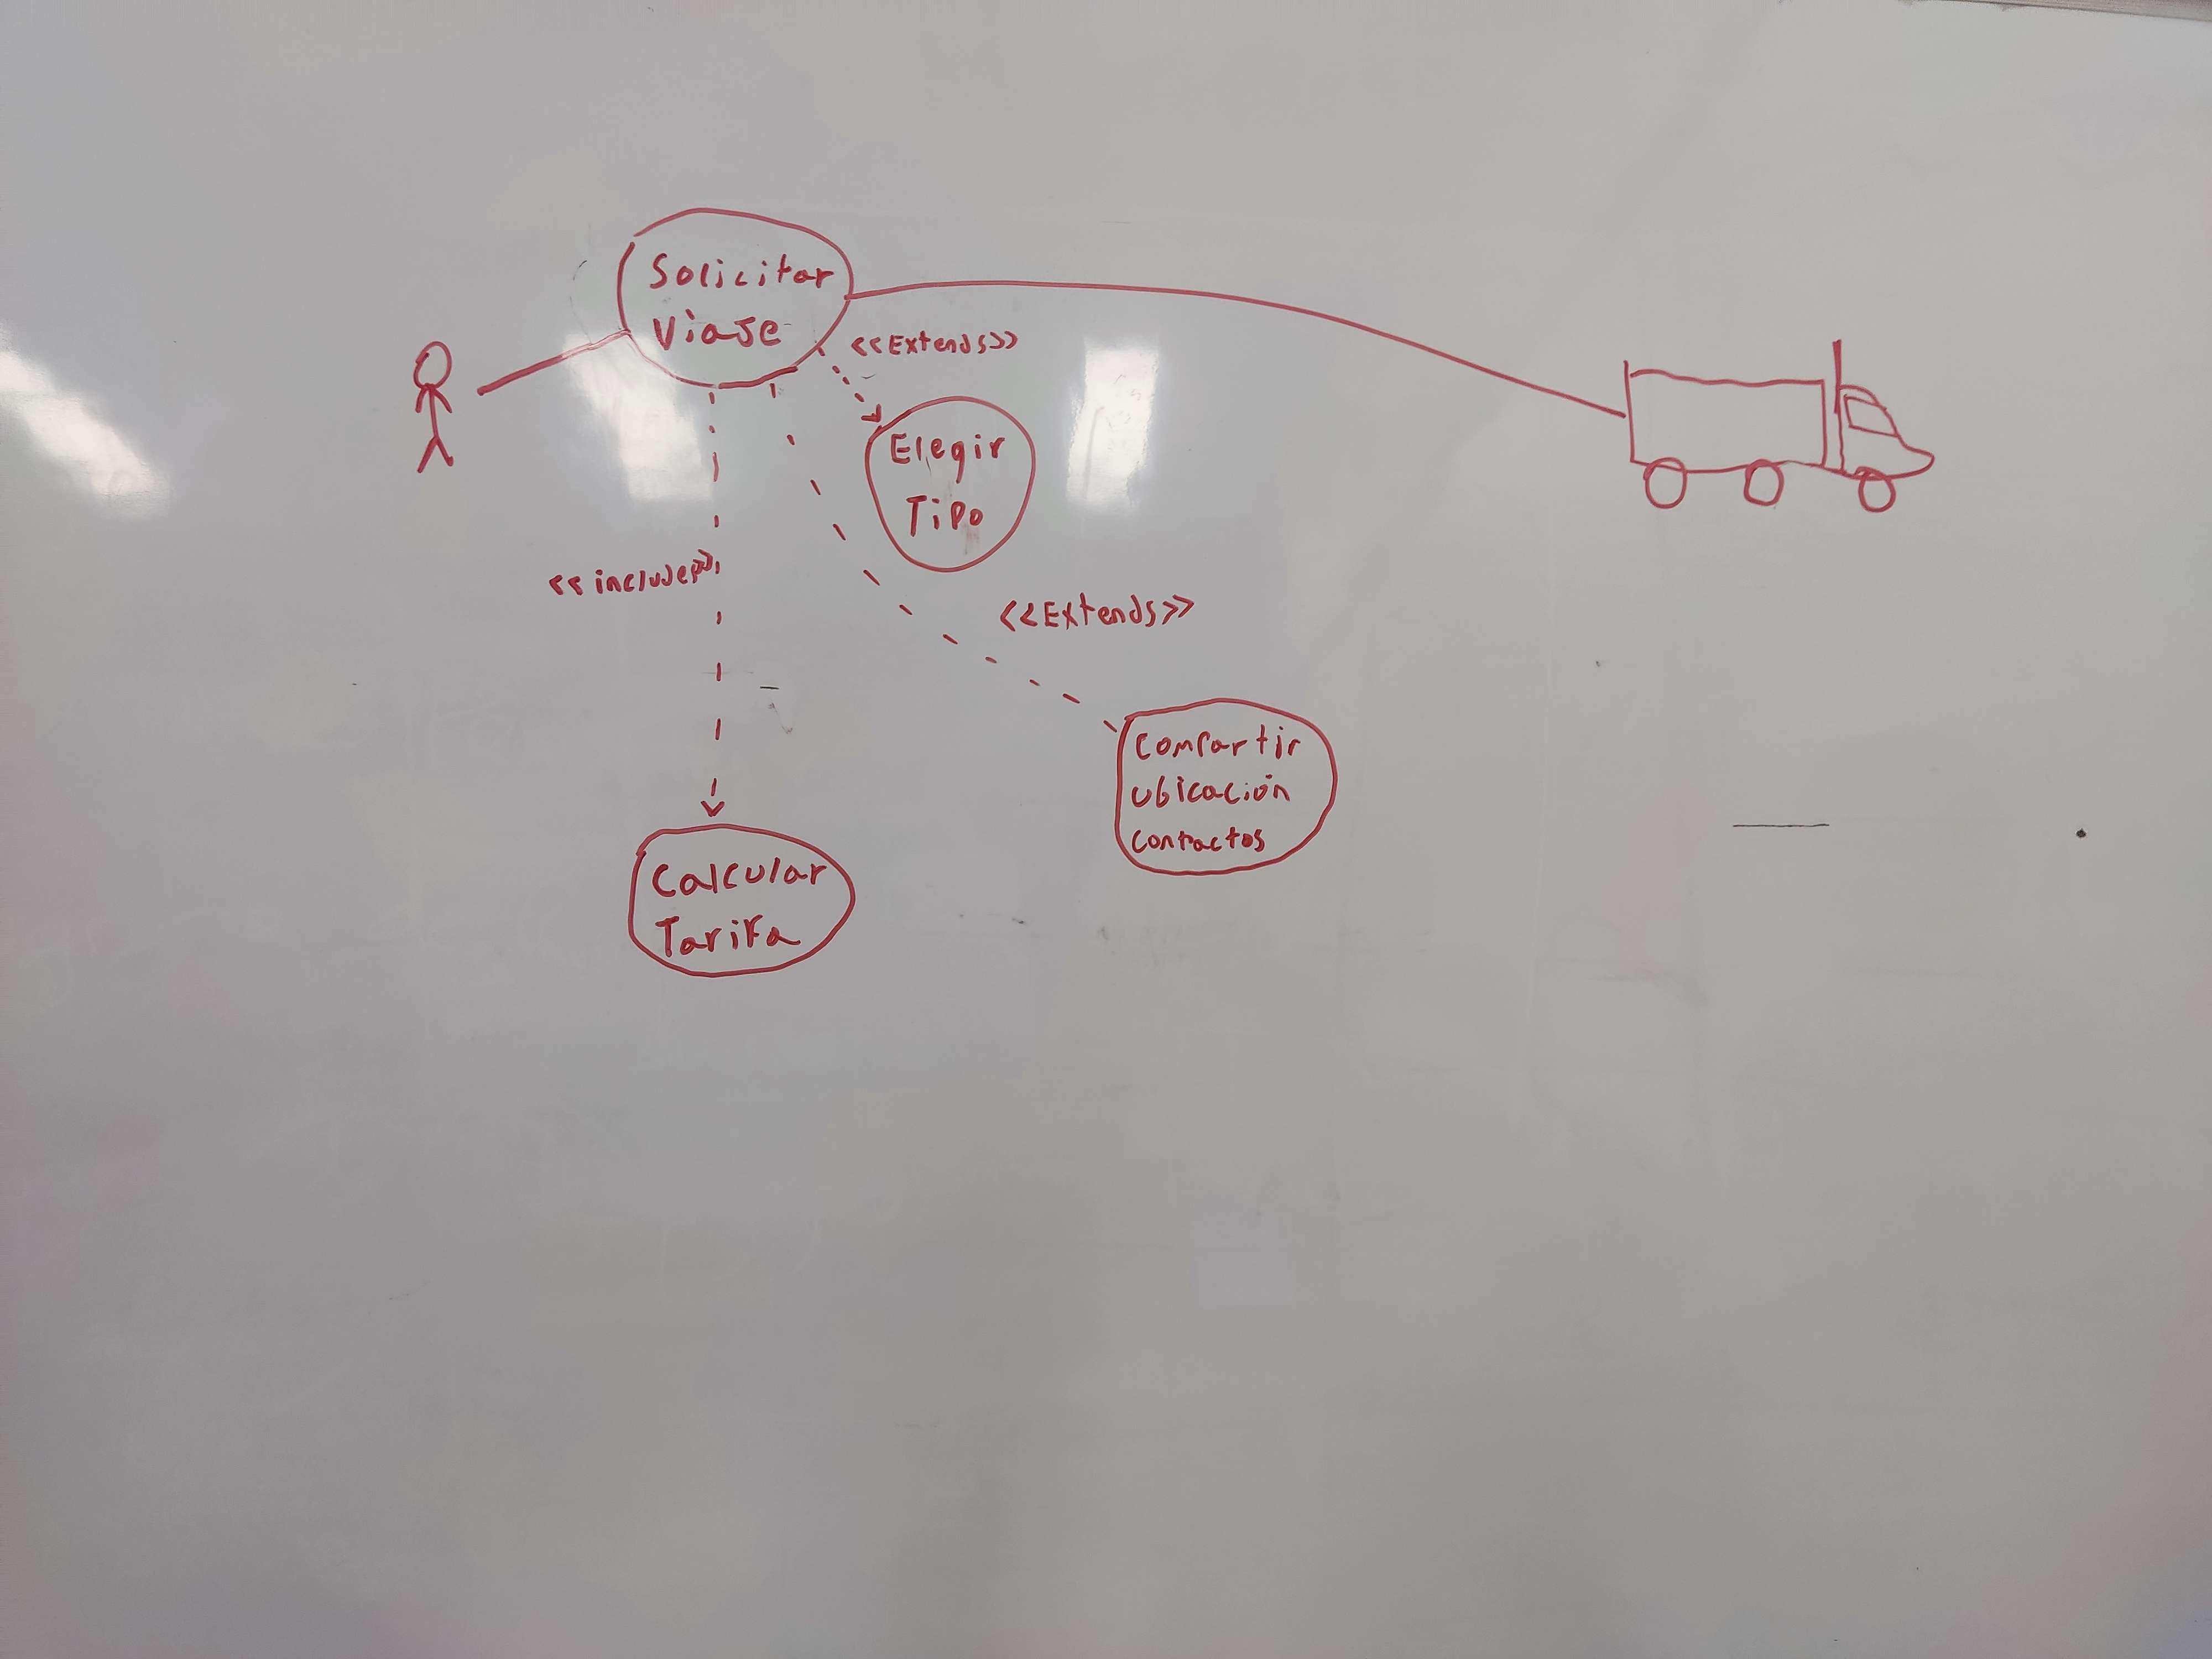 Solicitar
Viaje
<<Extends>>
Elegir
Tipo
<<includes>>
<<Extends>>
Compartir
ubicación
contactos
Calcular
Tarifa